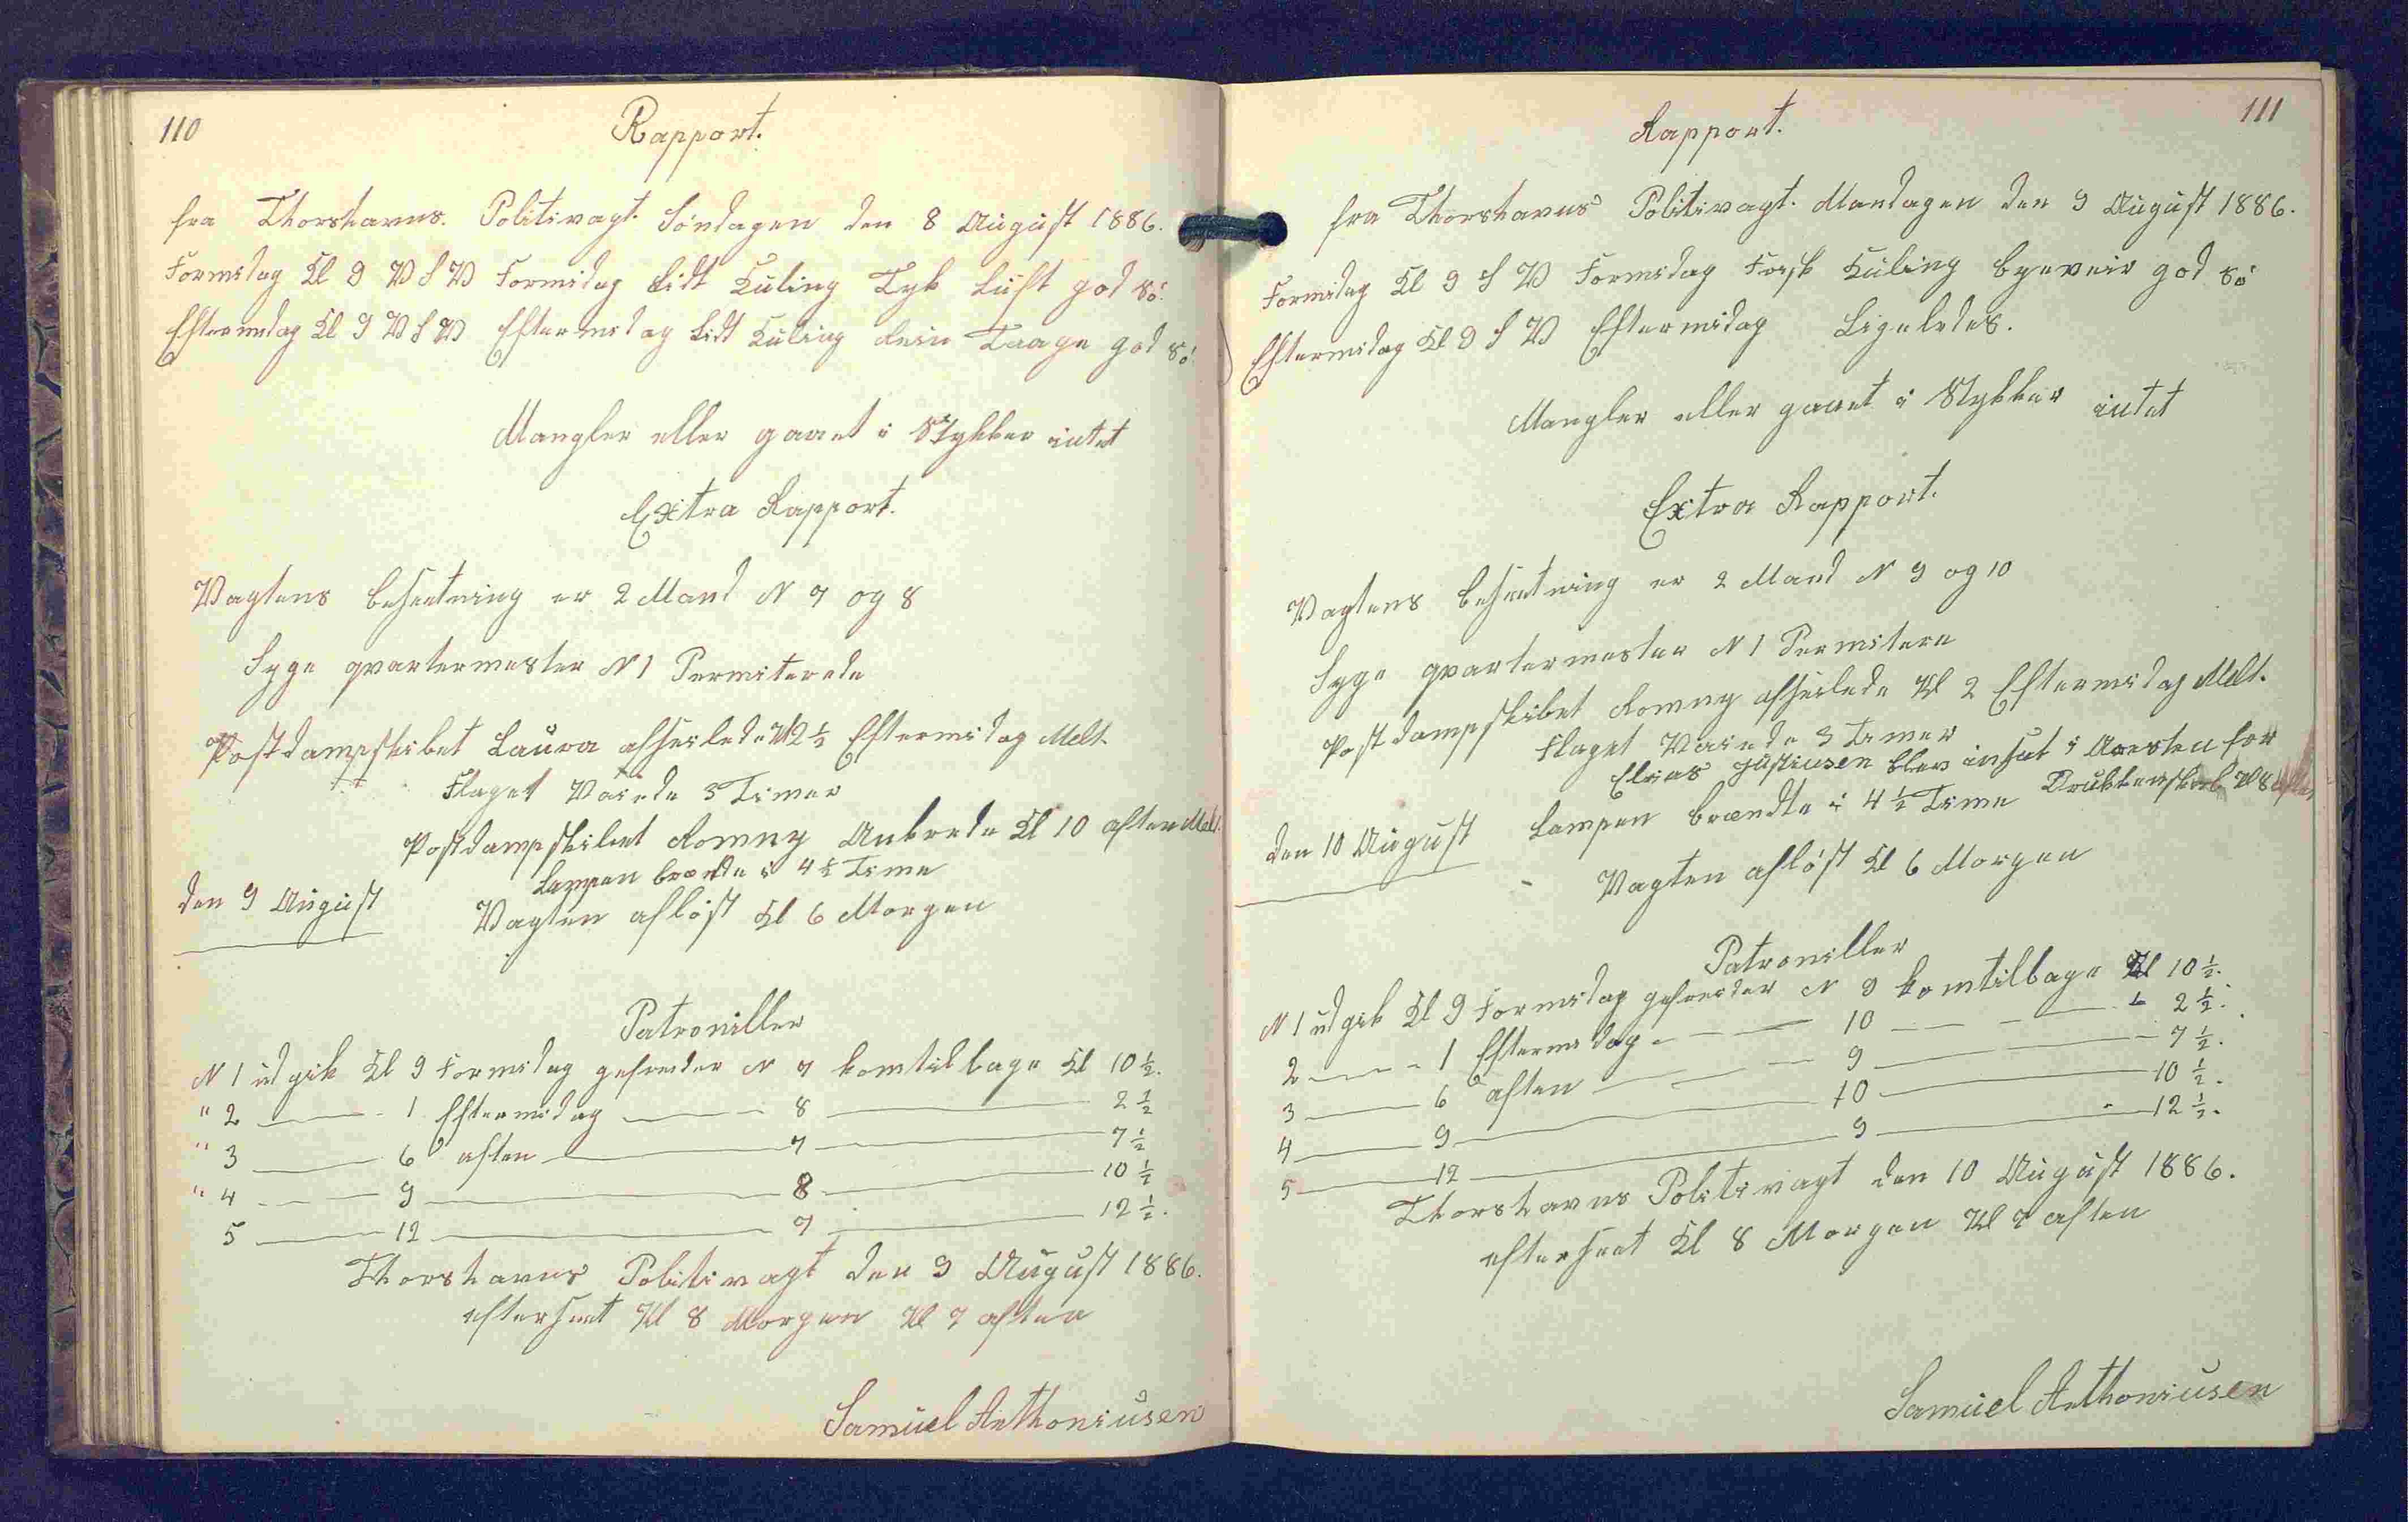 110
Rapport.
fra Thorshavns. Politivagt. Søndagen den 8 August 1886.
Formidag Kl 9 V S V Formidag Lidt Kuling Tyk Luft god Sø.
Eftermidag Kl 9 V S V Eftermidag Lidt Kuling Rein Taage god Sø.
Mangler eller gaaet i Stykker intet
Extra Rapport.
Vagtens besætning er 2 Mand N 7 og 8
Syge qvartermester N 1 Permiterede
Postdampskibet Laura afseilede Kl 2 ½ Eftermidag Melt.
Flaget Vaiede 3 Timer
Postdampskibet Romny Ankrede Kl 10 aften Melt.
Lampen brændte i 4 ½ Time
den 9 August Vagten afløst Kl 6 Morgen
Patroniller
N 1 udgik Kl 9 Formidag gefreider N 7 kom tilbage Kl 10 ½.
" 2 — 1 Eftermidag — 8 — 2 ½
" 3 — 6 aften — 7 — 7 ½
" 4 — 9 — 8 — 10 ½
5 — 12 — 7 — 12 ½.
Thorshavns Politivagt den 9 August 1886.
efterseet Kl 8 Morgen Kl 7 aften
Samuel Anthoniusen
111
Rapport.
fra Thorshavns Politivagt. Mandagen den 9 August 1886.
Formidag Kl 9 S V Formidag Frisk Kuling byeveir god Sø
Eftermidag Kl 9 S V Eftermidag Ligeledes.
Mangler eller gaaet i Stykker intet
Extra Rapport.
Vagtens besætning er 2 Mand N 9 og 10
Syge qvartermester N 1 Permitere
Postdampskibet Romny afseilede Kl 2 Eftermidag Melt.
Flaget Vaiede 3 Timer
Elias Justinusen blev insat i Aresten for
Drukkenskab Kl 8 Aften
den 10 August Lampen brændte i 4 ½ Time
Vagten afløst Kl 6 Morgen
Patroniller
N 1 udgik Kl 9 Formidag gefreider N 9 kom tilbage Kl 10 ½.
2 — 1 Eftermidag — 10 — 2 ½.
3 — 6 aften — 9 — 7 ½.
4 — 9 — 10 — 10 ½.
5 — 12 — 9 — 12 ½.
Thorshavns Politivagt den 10 August 1886.
efterseet Kl 8 Morgen Kl 7 aften
Samuel Anthoniusen